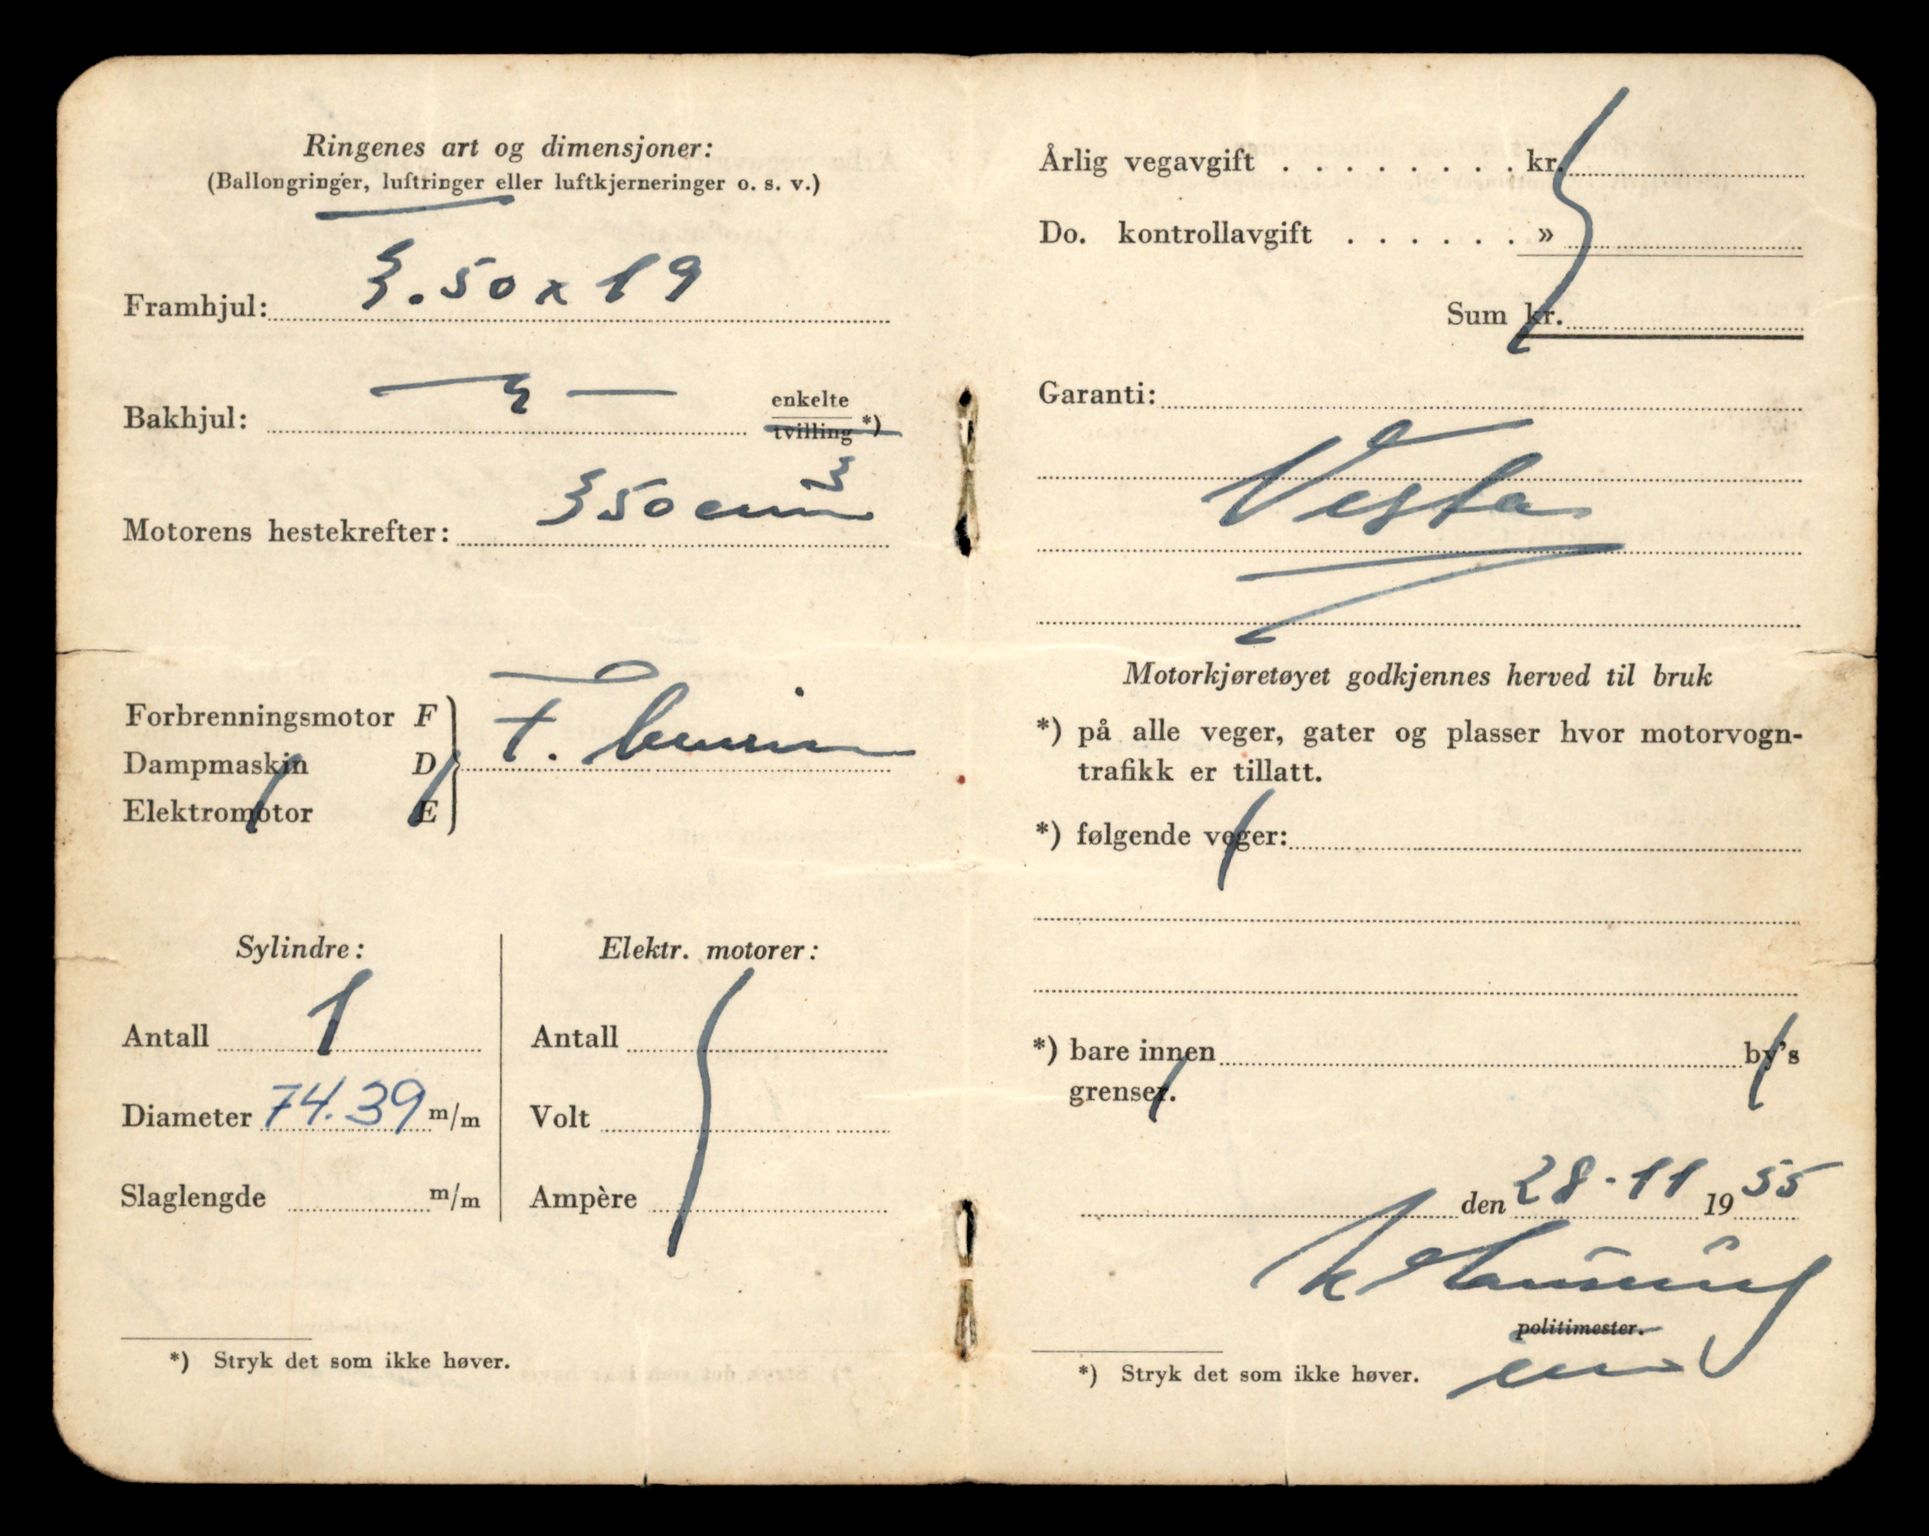 Ringenes art og dimensjoner:
(Ballongringer, luftringer eller luftkjerneringer o. s. v.)
Framhjul: 3.50 x 19
Bakhjul: — " — enkelte
tvilling *)
Motorens hestekrefter: 350 cm3
Forbrenningsmotor F
Dampmaskin D
Elektromotor E
F. bensin
Sylindre:
Antall 1
Diameter 74.39 m/m
Slaglengde m/m
Elektr. motorer:
Antall
Volt
Ampère
*) Stryk det som ikke høver.
Årlig vegavgift . . . . . . . . kr.
Do. kontrollavgift . . . . . . »
Sum kr.
Garanti:
Vesta
Motorkjøretøyet godkjennes herved til bruk
*) på alle veger, gater og plasser hvor motorvogn-
trafikk er tillatt.
*) følgende veger:
*) bare innen by's
grenser.
den 28-11 1955
politimester.
*) Stryk det som ikke høver.